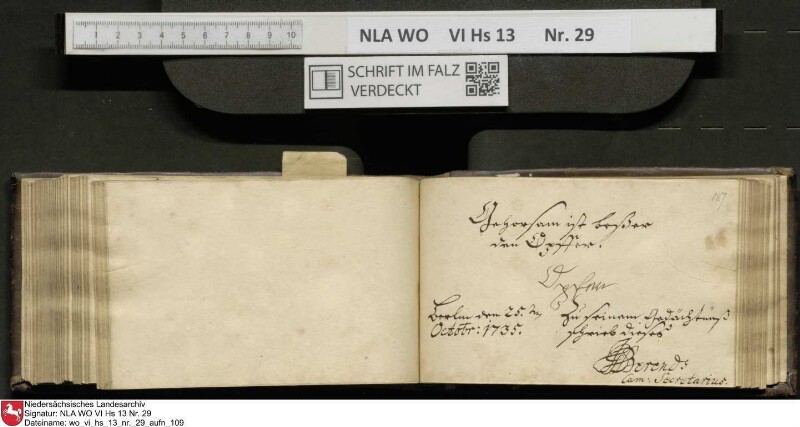 1 2 3 4 5 6 7 8 9 10
NLA WO VI Hs 13 Nr. 29
SCHRIFT IM FALZ
VERDECKT
167
Gehorsam ist beßer
den Opffer.
Berlin den 25. 
Octobr: 1735.
Zu seinem Gedächtnuß
schrieb dieses
Berends
Cam: Secretarius.
Niedersächsisches Landesarchiv
Signatur: NLA WO VI Hs 13 Nr. 29
Dateiname: wo_vi_hs_13_nr._29_aufn_109